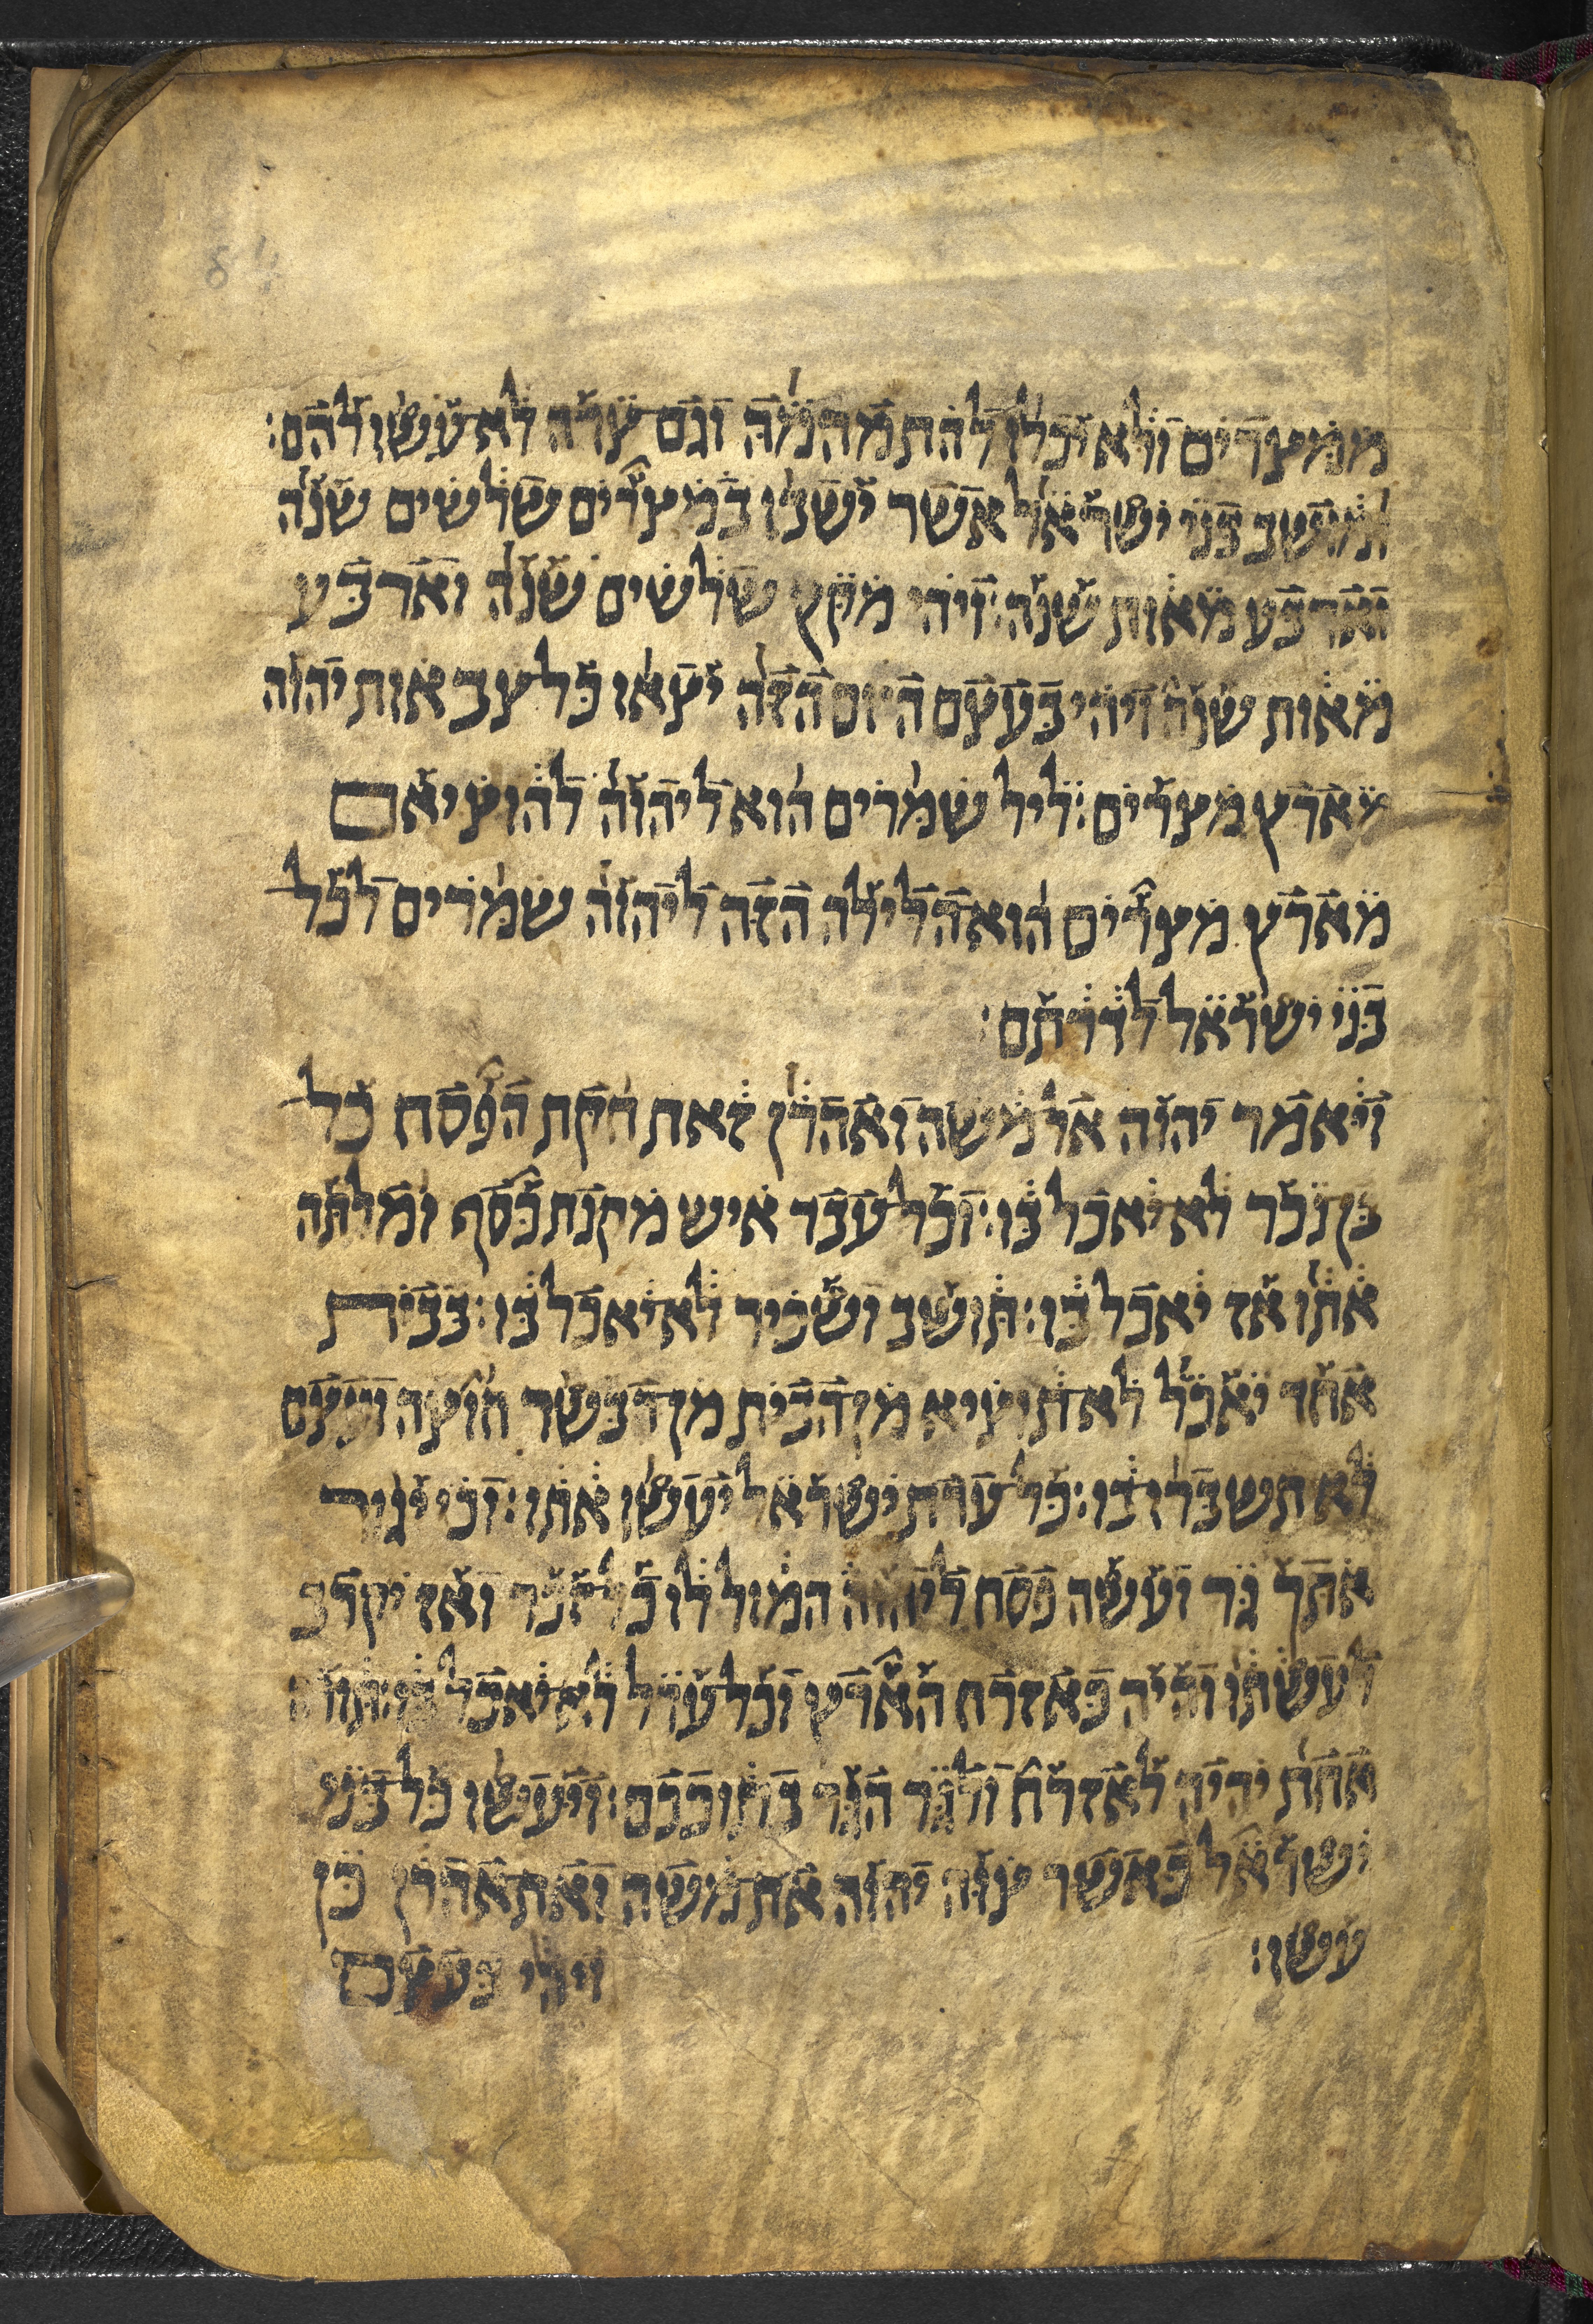 84
ממצרים ולא יכלו להתמהמה וגם צדה לא עשו להם:
ומושב בני ישראל אשר ישבו במצרים שלשים שנה
וארבע מאות שנה: ויהי מקץ שלשים שנה וארבע
מאות שנה ויהי בעצם היום הזה יצאו כל צבאות יהוה
מארץ מצרים: ליל שמרים הוא ליהוה להוציאם
מארץ מצרים הוא הלילה הזה ליהוה שמרים לכל
בני ישראל לדרתם:
ויאמר יהוה אל משה ואהרן זאת חקת הפסח כל
בן נכר לא יאכל בו: וכל עבד איש מקנת כסף ומלתה
אתו אז יאכל בו: תושב ושכיר לא יאכל בו: בבית
אחד יאכל לא תוציא מן הבית מן הבשר חוצה ועצם
לא תשברו בו: כל עדת ישראל יעשו אתו: וכי יגור
אתך גר ועשה פסח ליהוה המול לו כל זכר ואז יקרב
לעשתו והיה כאזרח הארץ וכל ערל לא יאכל בו: תורה
אחת יהיה לאזרח ולגר הגר בתוככם: ויעשו כל בני
ישראל כאשר צוה יהוה את משה ואת אהרן כן
עשו: ויהי בעצם